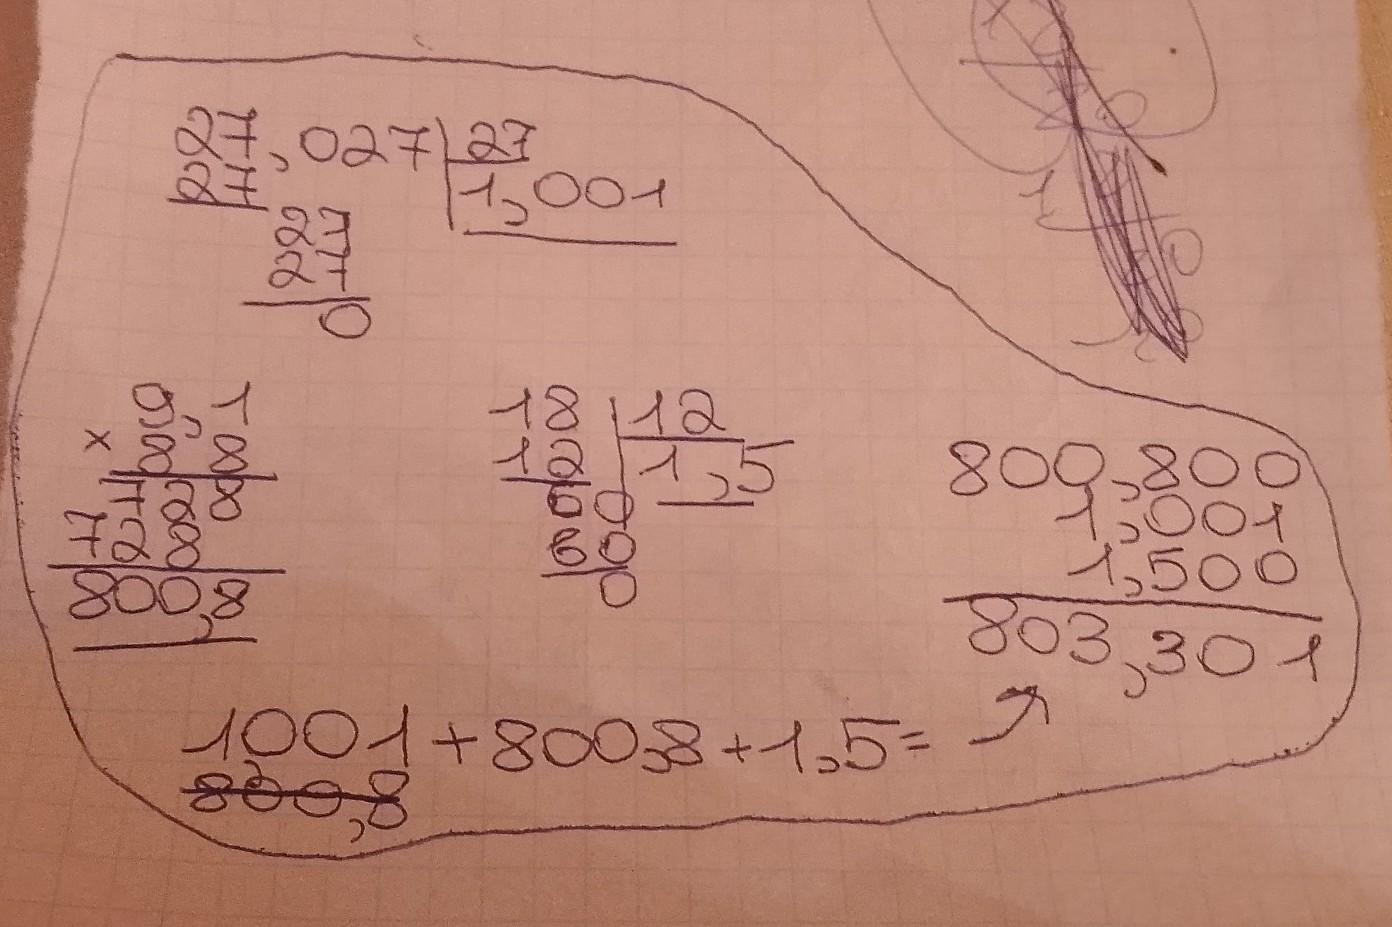 27,027 | 27
27 | 1,001
27
27
0
9,1
× 8 8
7 2 8
7 2 8
800,8
18 | 12
12 | 1,5
60
60
0
800,800
1,001
1,500
803,301
1,001 + 800,8 + 1,5 =
800,8